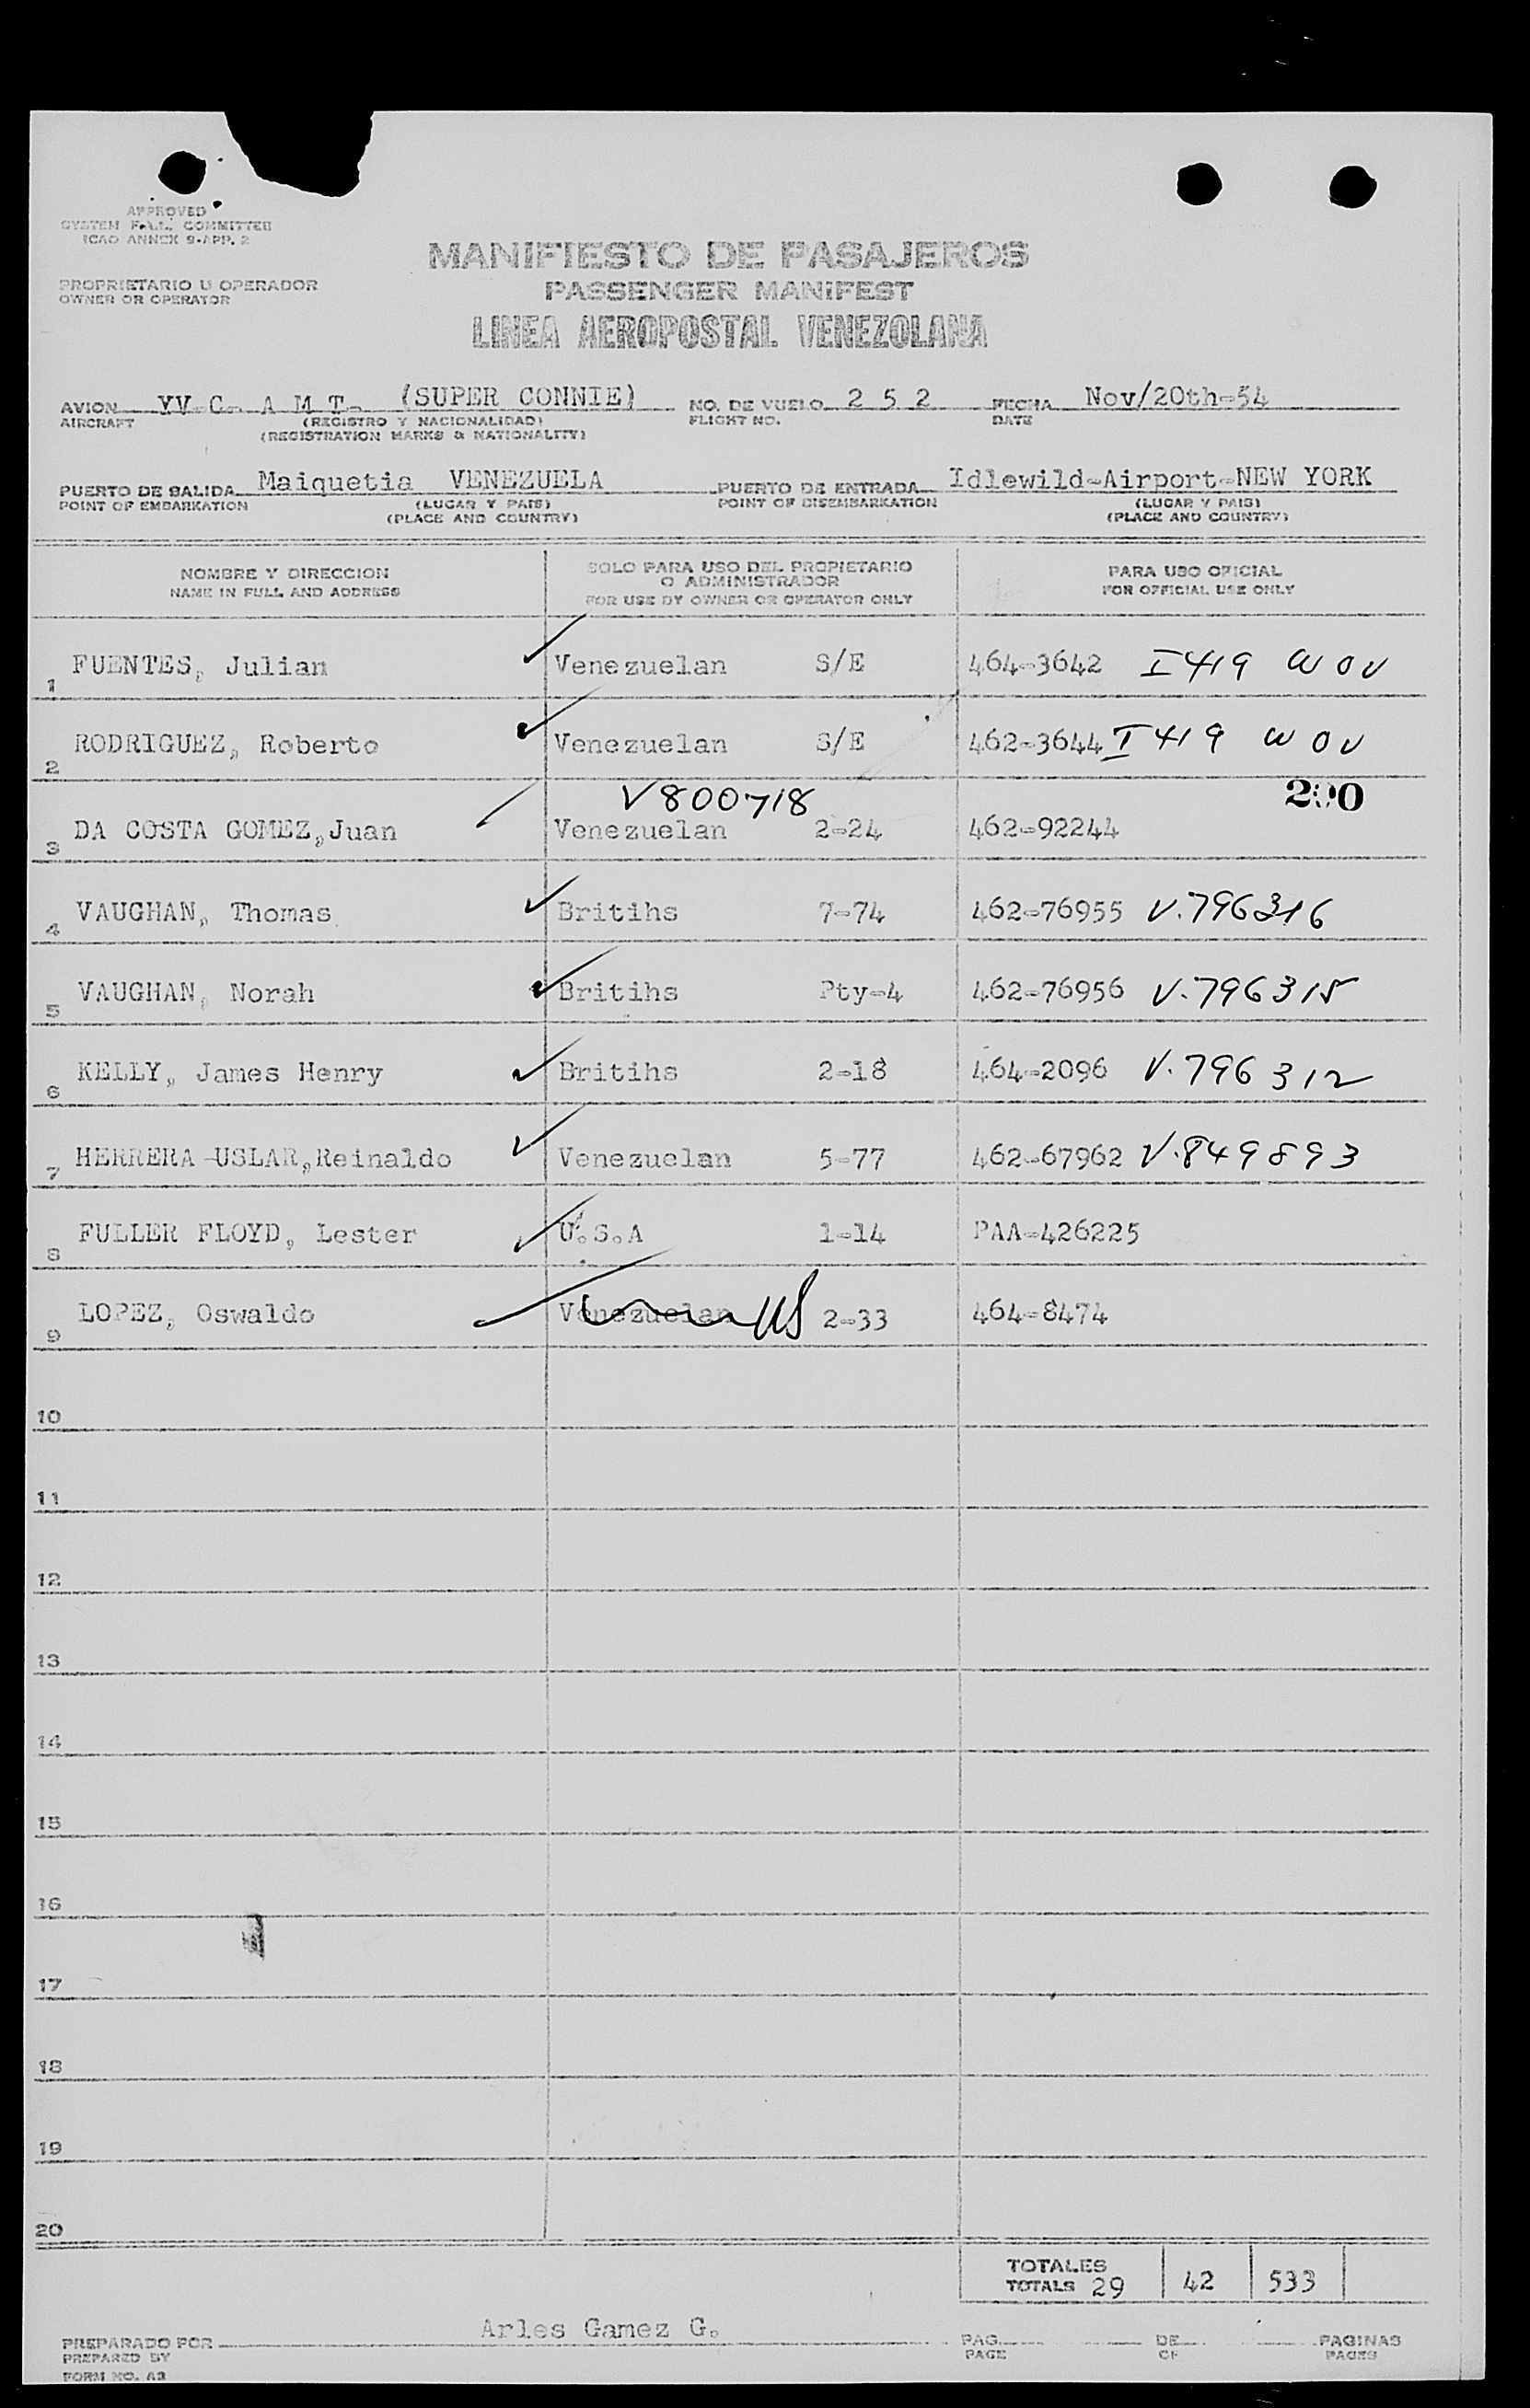 APPROVED
SYSTEM F.A.L. COMMITTEE
ICAO ANNEX 9-APP. 2
MANIFIESTO DE PASAJEROS
PROPRIETARIO U OPERADOR
OWNER OR OPERATOR
PASSENGER MANIFEST
LINEA AEROPOSTAL VENEZOLANA
AVION YV-C- A M T- (SUPER CONNIE) NO. DE VUELO 2 5 2 FECHA Nov/20th-54
AIRCRAFT (REGISTRO Y NACIONALIDAD) FLIGHT NO. DATE
(REGISTRATION MARKS & NATIONALITY)
PUERTO DE SALIDA Maiquetia VENEZUELA PUERTO DE ENTRADA Idlewild-Airport-NEW YORK
POINT OF EMBARKATION (LUGAR Y PAIS) POINT OF DISEMBARKATION (LUGAR Y PAIS)
(PLACE AND COUNTRY) (PLACE AND COUNTRY)
NOMBRE Y DIRECCION SOLO PARA USO DEL PROPIETARIO O ADMINISTRADOR PARA USO OFICIAL
NAME IN FULL AND ADDRESS FOR USE BY OWNER OR OPERATOR ONLY FOR OFFICIAL USE ONLY
1 FUENTES, Julian Venezuelan S/E 464-3642 I 419 WOV
2 RODRIGUEZ, Roberto Venezuelan S/E 462-3644 I 419 WOV
V800718 200
3 DA COSTA GOMEZ,Juan Venezuelan 2-24 462-92244
4 VAUGHAN, Thomas Britihs 7-74 462-76955 V.796316
5 VAUGHAN, Norah Britihs Pty-4 462-76956 V.796315
6 KELLY, James Henry Britihs 2-18 464-2096 V.796312
7 HERRERA-USLAR,Reinaldo Venezuelan 5-77 462-67962 V.849893
8 FULLER FLOYD, Lester U.S.A 1-14 PAA-426225
9 LOPEZ, Oswaldo Venezuelan US 2-33 464-8474
10
11
12
13
14
15
16
17
18
19
20
TOTALES
TOTALS 29 42 533
PREPARADO POR Arles Gamez G. PAG. DE PAGINAS
PREPARED BY PAGE OF PAGES
FORM NO. A3